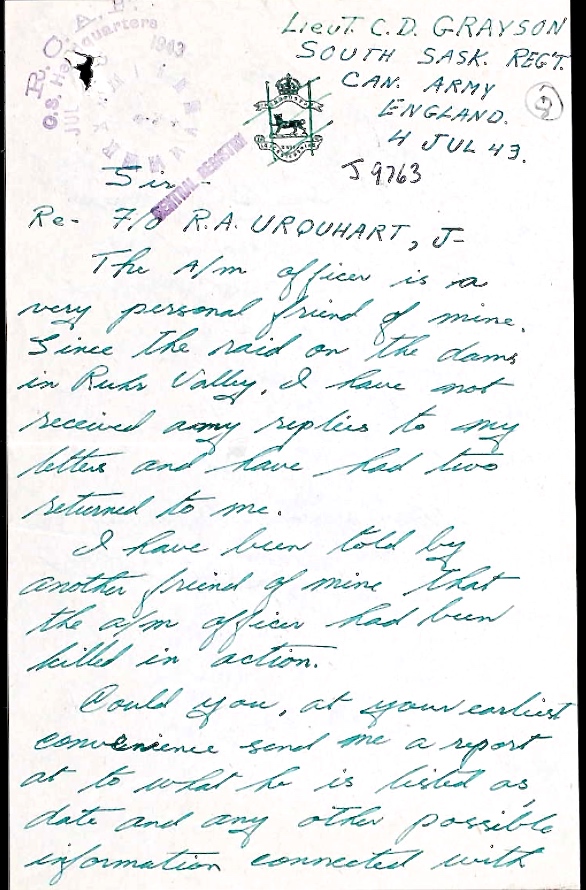 Lieut. C. D. GRAYSON
SOUTH SASK. REG'T.
CAN. ARMY
ENGLAND.
4 JUL 43.
2
R.C.A.F.
O.S. Headquarters
JUL
1943
J 9763
Sir -
Re- F/O R.A. URQUHART, J-
The a/m officer is a
very personal friend of mine.
Since the raid on the dams
in Ruhr Valley, I have not
received any replies to my
letters and have had two
returned to me.
I have been told by
another friend of mine that
the a/m officer had been
killed in action.
Could you, at your earliest
convenience send me a report
at to what he is listed as,
date and any other possible
information connected with